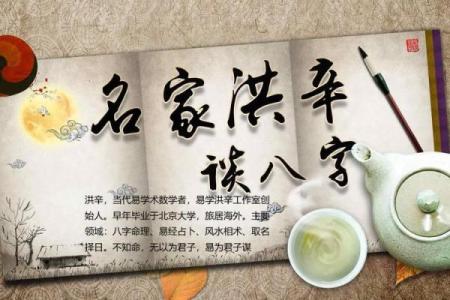 名家洪辛
谈八字
洪辛，当代易学术数学者，易学洪辛工作室创
始人。早年毕业于北京大学，旅居海外。主要
领域：八字命理、易经占卜、风水相术、取名
择日。不知命，无以为君子，易为君子谋